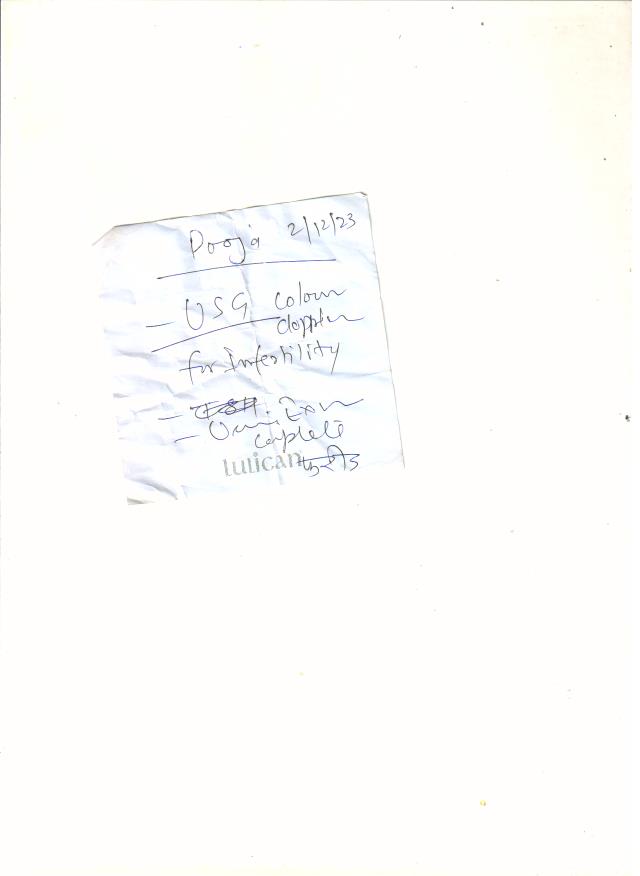 Pooja 2/12/23
- USG colour
doppler
for Infertility
- Exam
- Urine
complete
lulican